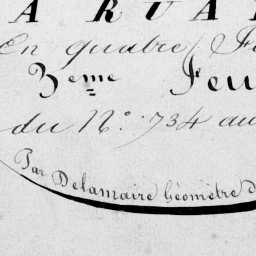 A RUA
En quatre
3eme Feu
du N° 734 au
Par Delamaire Géomètre d